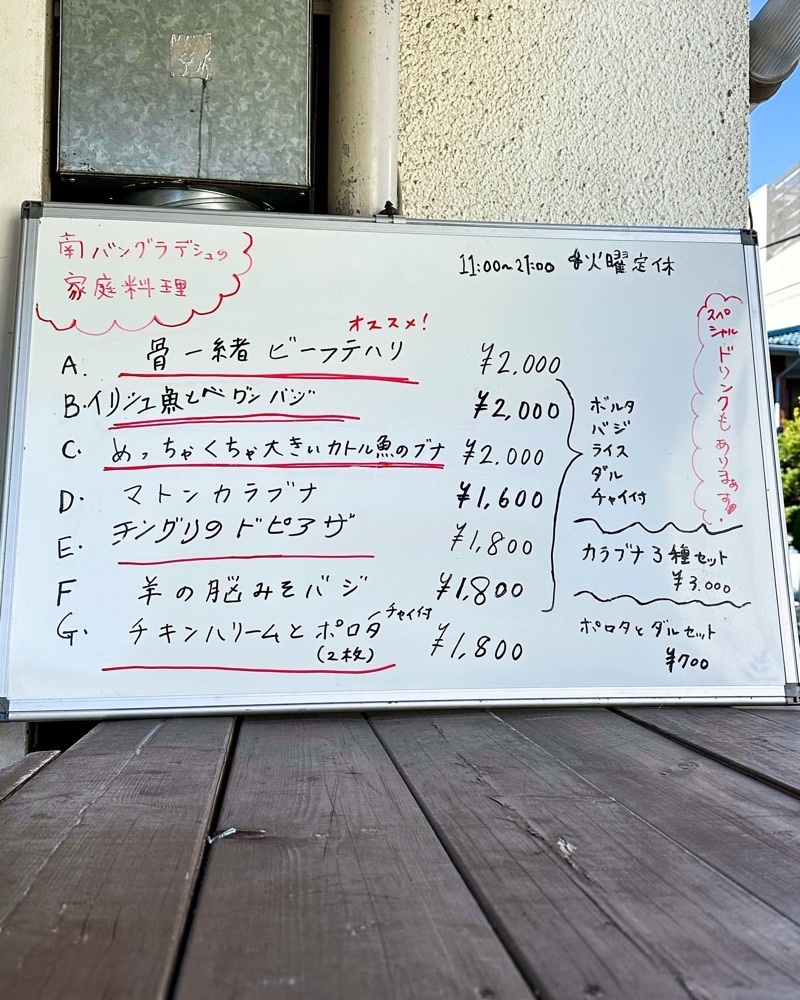 南バングラデシュの
家庭料理
11:00〜21:00 火曜定休
オススメ!
A. 骨一緒 ビーフテハリ ¥2,000
B. イリシュ魚とベグンバジ ¥2,000
C. めっちゃくちゃ大きいカトル魚のブナ ¥2,000
D. マトンカラブナ ¥1,600
E. チングリのドピアザ ¥1,800
F 羊の脳みそバジ ¥1,800
G. チキンハリームとポロタ チャイ付 ¥1,800
(2枚)
ボルタ
バジ
ライス
ダル
チャイ付
カラブナ3種セット
¥3,000
ポロタとダルセット
¥700
スペシャルドリンクもありまぁす